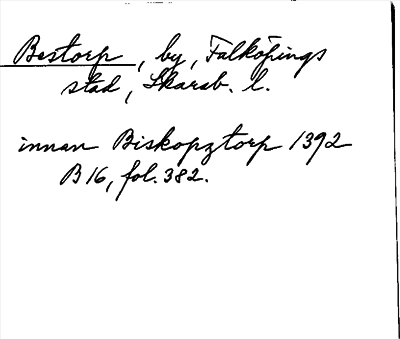 Bestorp, by, Falköpings
stad, Skarab. l.
innan Biskopztorp 1392
B 16, fol. 382.